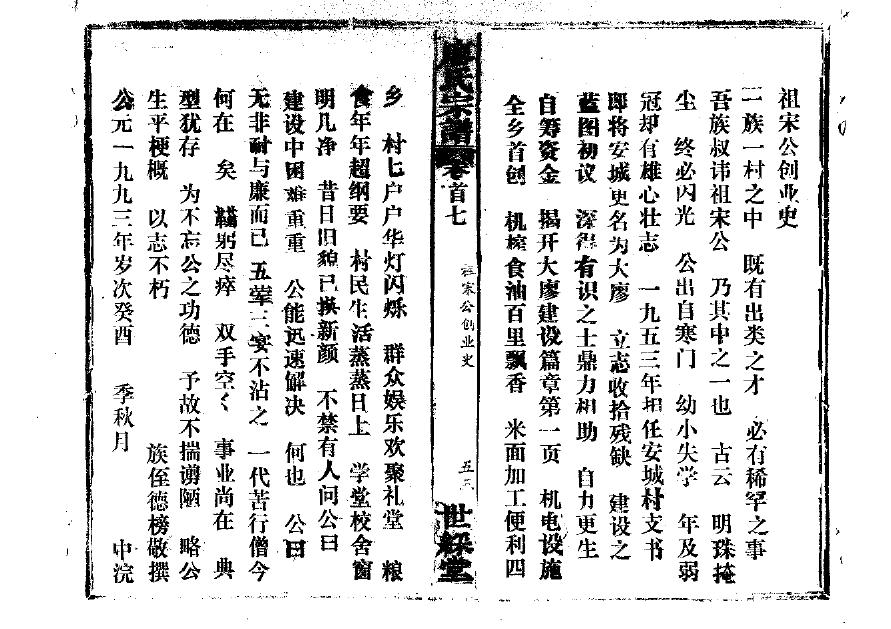 祖宋公创业史
一族一村之中 既有出类之才 必有稀罕之事
吾族叔讳祖宋公 乃其中之一也 古云 明珠掩
尘 终必闪光 公出自寒门 幼小失学 年及弱
冠却有雄心壮志 一九五三年担任安城村支书
即将安城更名为大廖 立志收拾残缺 建设之
蓝图初议 深得有识之士鼎力相助 自力更生
自筹资金 揭开大廖建设篇章第一页 机电设施
全乡首创 机榨食油百里飘香 米面加工便利四
廖氏宗谱 卷首七
祖宋公创业史
五三
世綵堂
乡 村七户户华灯闪烁 群众娱乐欢聚礼堂 粮
食年年超纲要 村民生活蒸蒸日上 学堂校舍窗
明几净 昔日旧貌已换新颜 不禁有人问公曰
建设中困难重重 公能迅速解决 何也 公曰
无非耐与廉而已 五荤三宴不沾之 一代苦行僧今
何在 矣 鞠躬尽瘁 双手空く 事业尚在 典
型犹存 为不忘公之功德 予故不揣谫陋 略公
生平梗概 以志不朽 族侄德榜敬撰
公元一九九三年岁次癸酉 季秋月 中浣